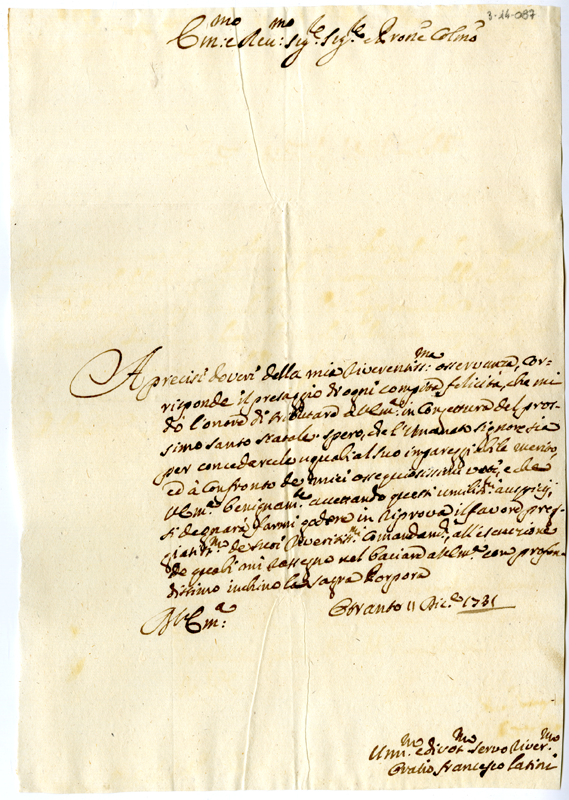 3-14-087
Em:mo e Reu:mo Sig.re Sig.re e Prone Colmo
A precisi doveri della mia riverentiss:ma osservanza, cor=
risponde il presaggio di ogni compita felicità, che mi
dò l'onore di tributare a V Em:a in congettura del pros=
simo santo Natale. spero, che l'Umanato Signore sia
per concedercele uguali al suo impareggiabile merito,
ed à confronto de miei ossequiosissimi voti, e che
V Em:a benignam.te accettando questi umiliss:mi auspicij,
si degnarà farmi godere in riprova il favore pre=
giatiss:mo de suoi riveritiss:mi Comandam.ti, all'esecuzione
de quali mi rassegno nel baciare a V Em:a con profon=
dissimo inchino la Sagra Porpora
Otranto 11 Dic.e 1731
Di V Em:a
Um:mo e divot:mo Servo River:mo
Oratio Francesco Latini